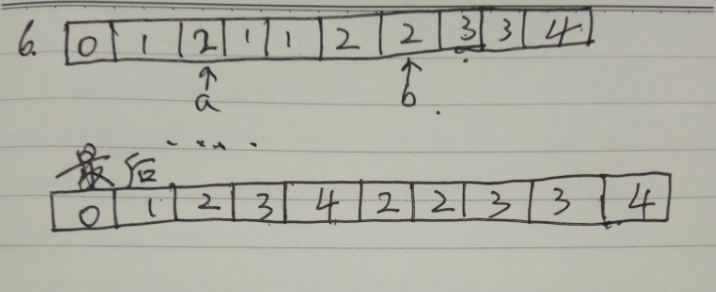 6. 0 1 2 1 1 2 2 3 3 4
a b.
最后 ....
0 1 2 3 4 2 2 3 3 4